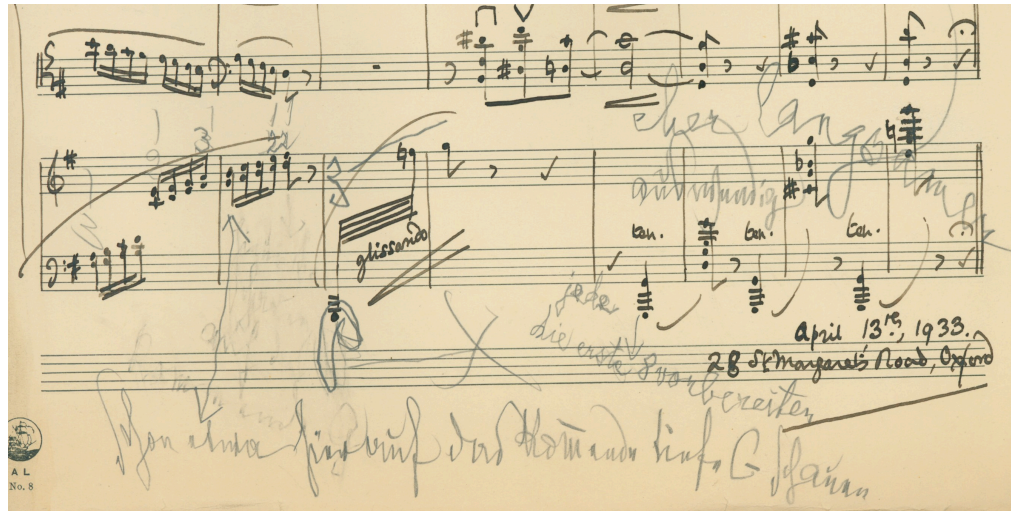 eher langsam
auswendig
3
glissando
ten. ten. ten.
jedes
die erste 8 vorbereiten
April 13re, 1933.
28 St Margaret's Road, Oxford
Schon etwa hier auf das Kommende tiefe G schauen
A L
No. 8